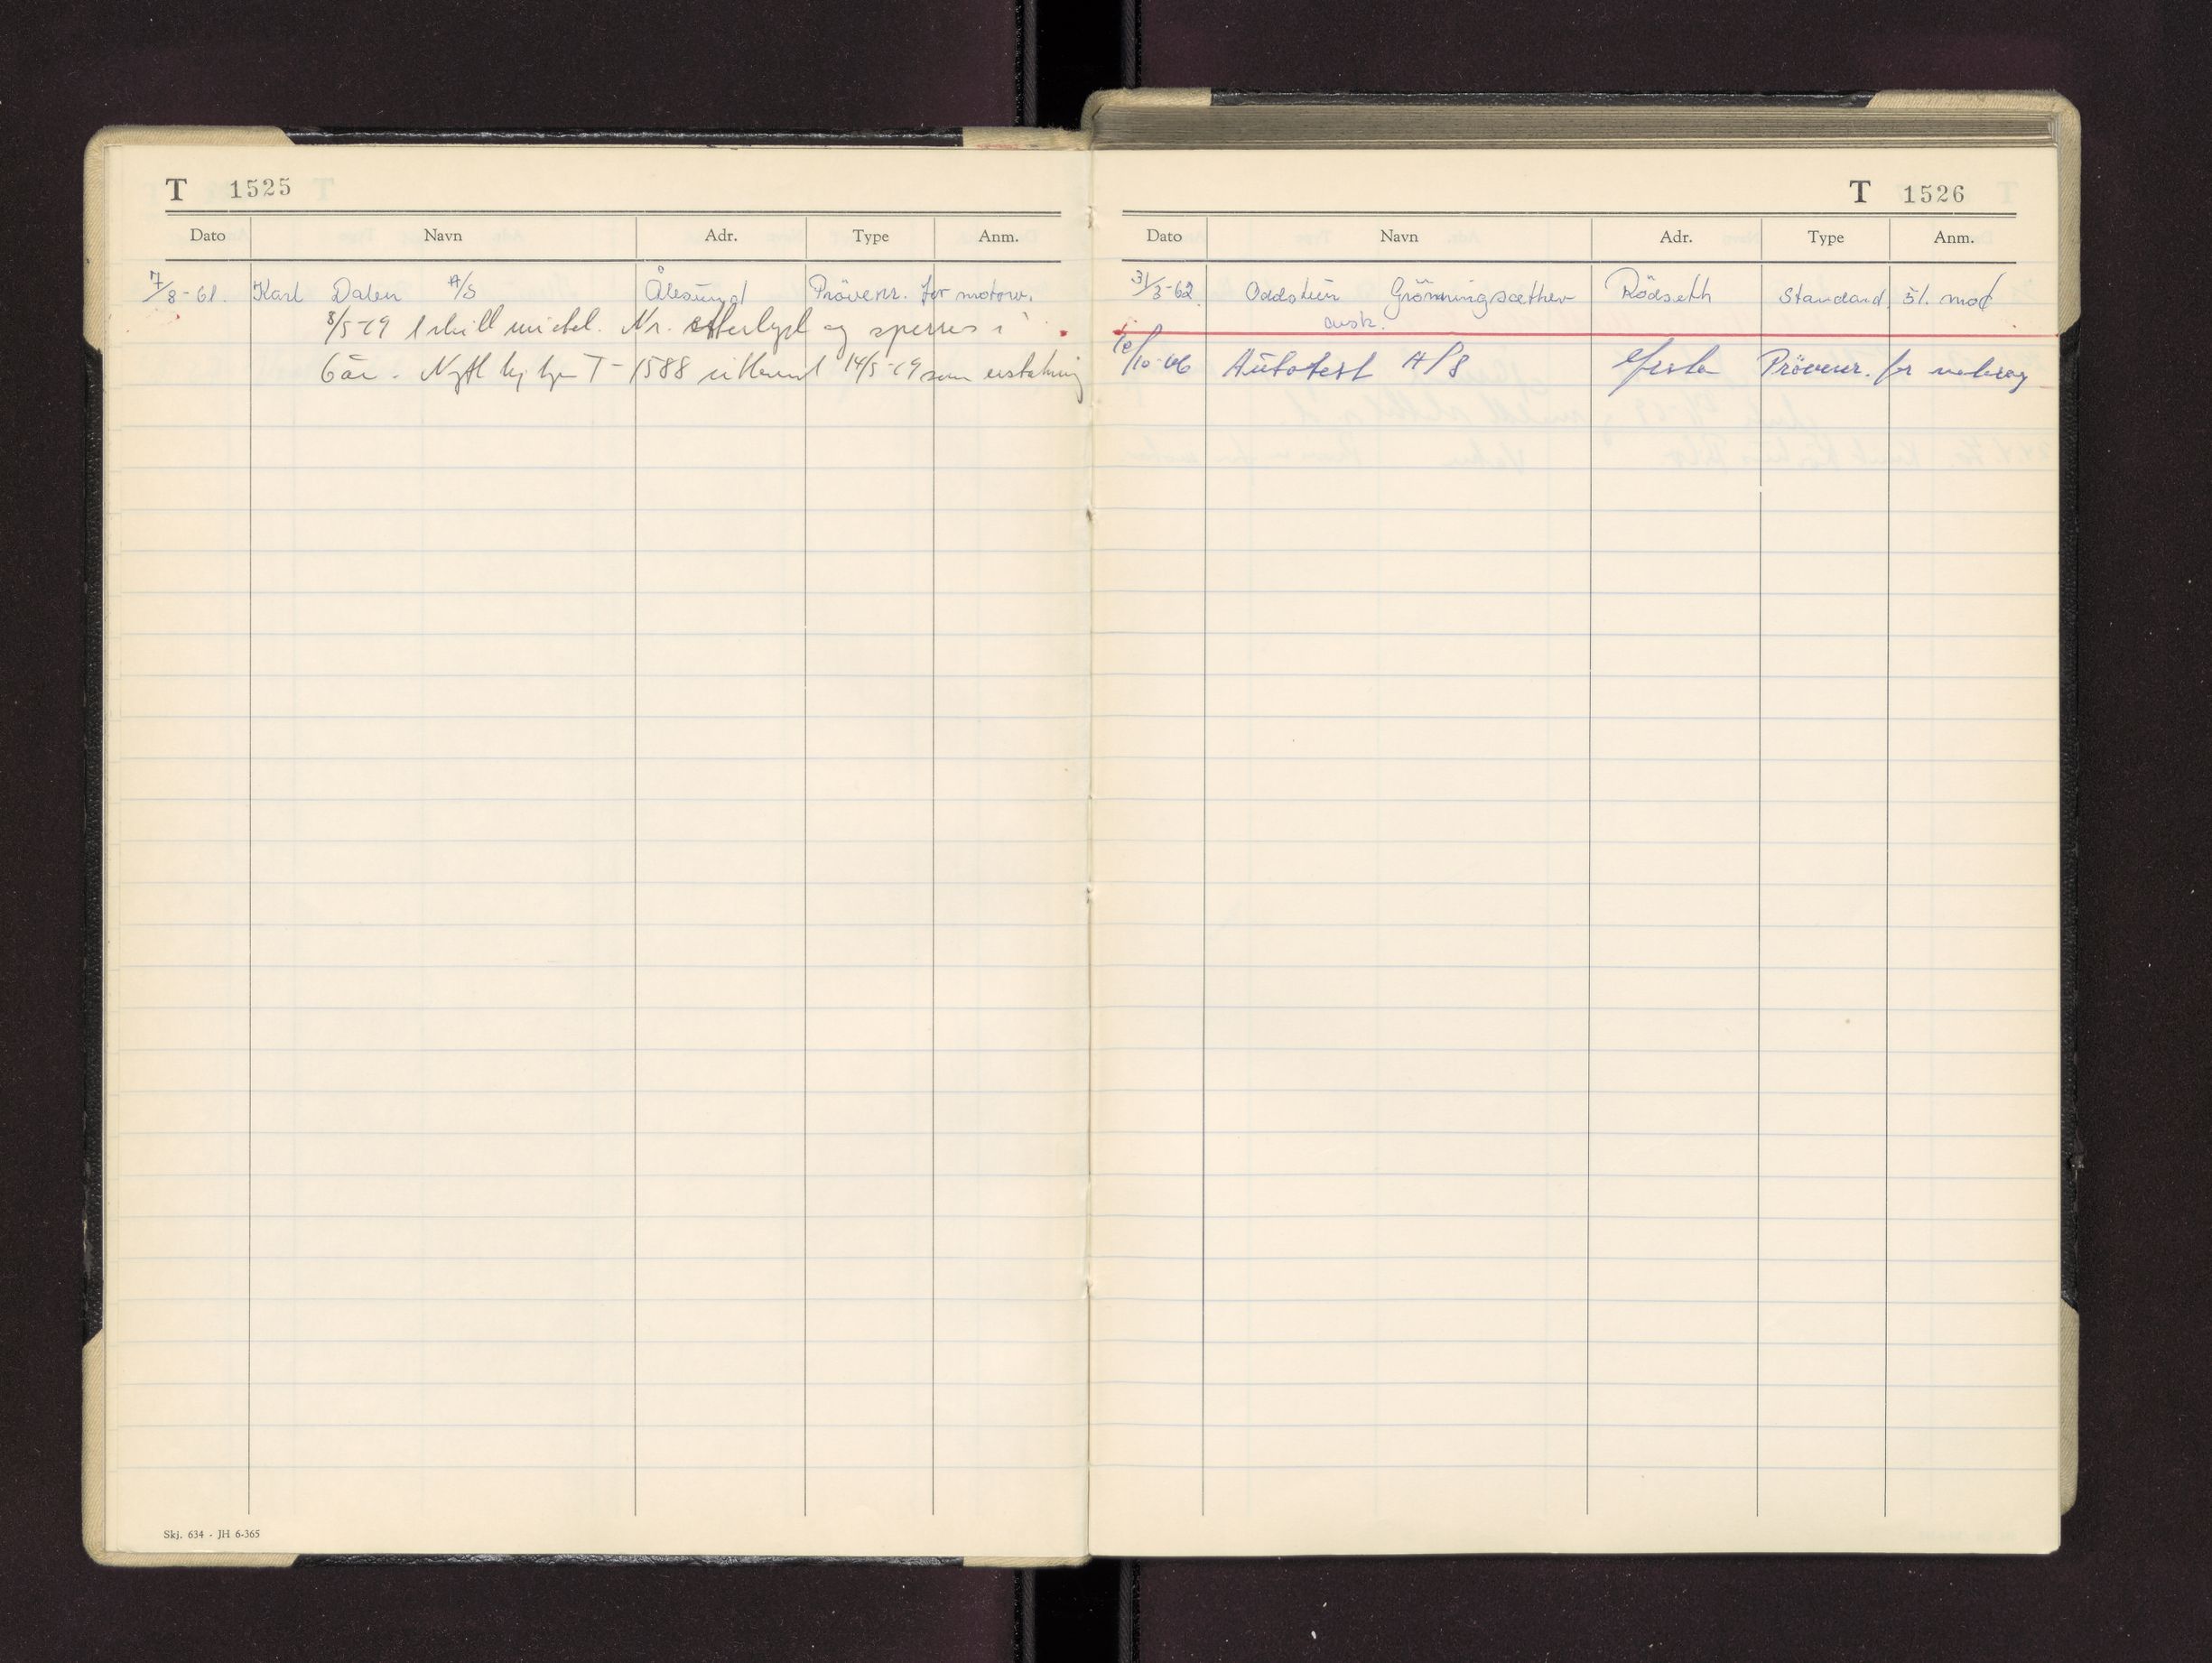 T 1525
Dato Navn Adr. Type Anm.
7/8-61. Karl Dalen A/S Ålesund Prövenr. for motorv.
8/5-79 1 skilt mistet. Nr. etterlyst og sperres i
6 år. Nytt T-1588 utlevert 14/5-79 som erstatning
Skj. 634 - JH 6-365
T 1526
Dato Navn Adr. Type Anm.
31/3-62 Oddstein Grönningsæther Rödseth Standard 51. mod
avsk.
10/10-66 Autotest A/S Prövenr. for motorvog